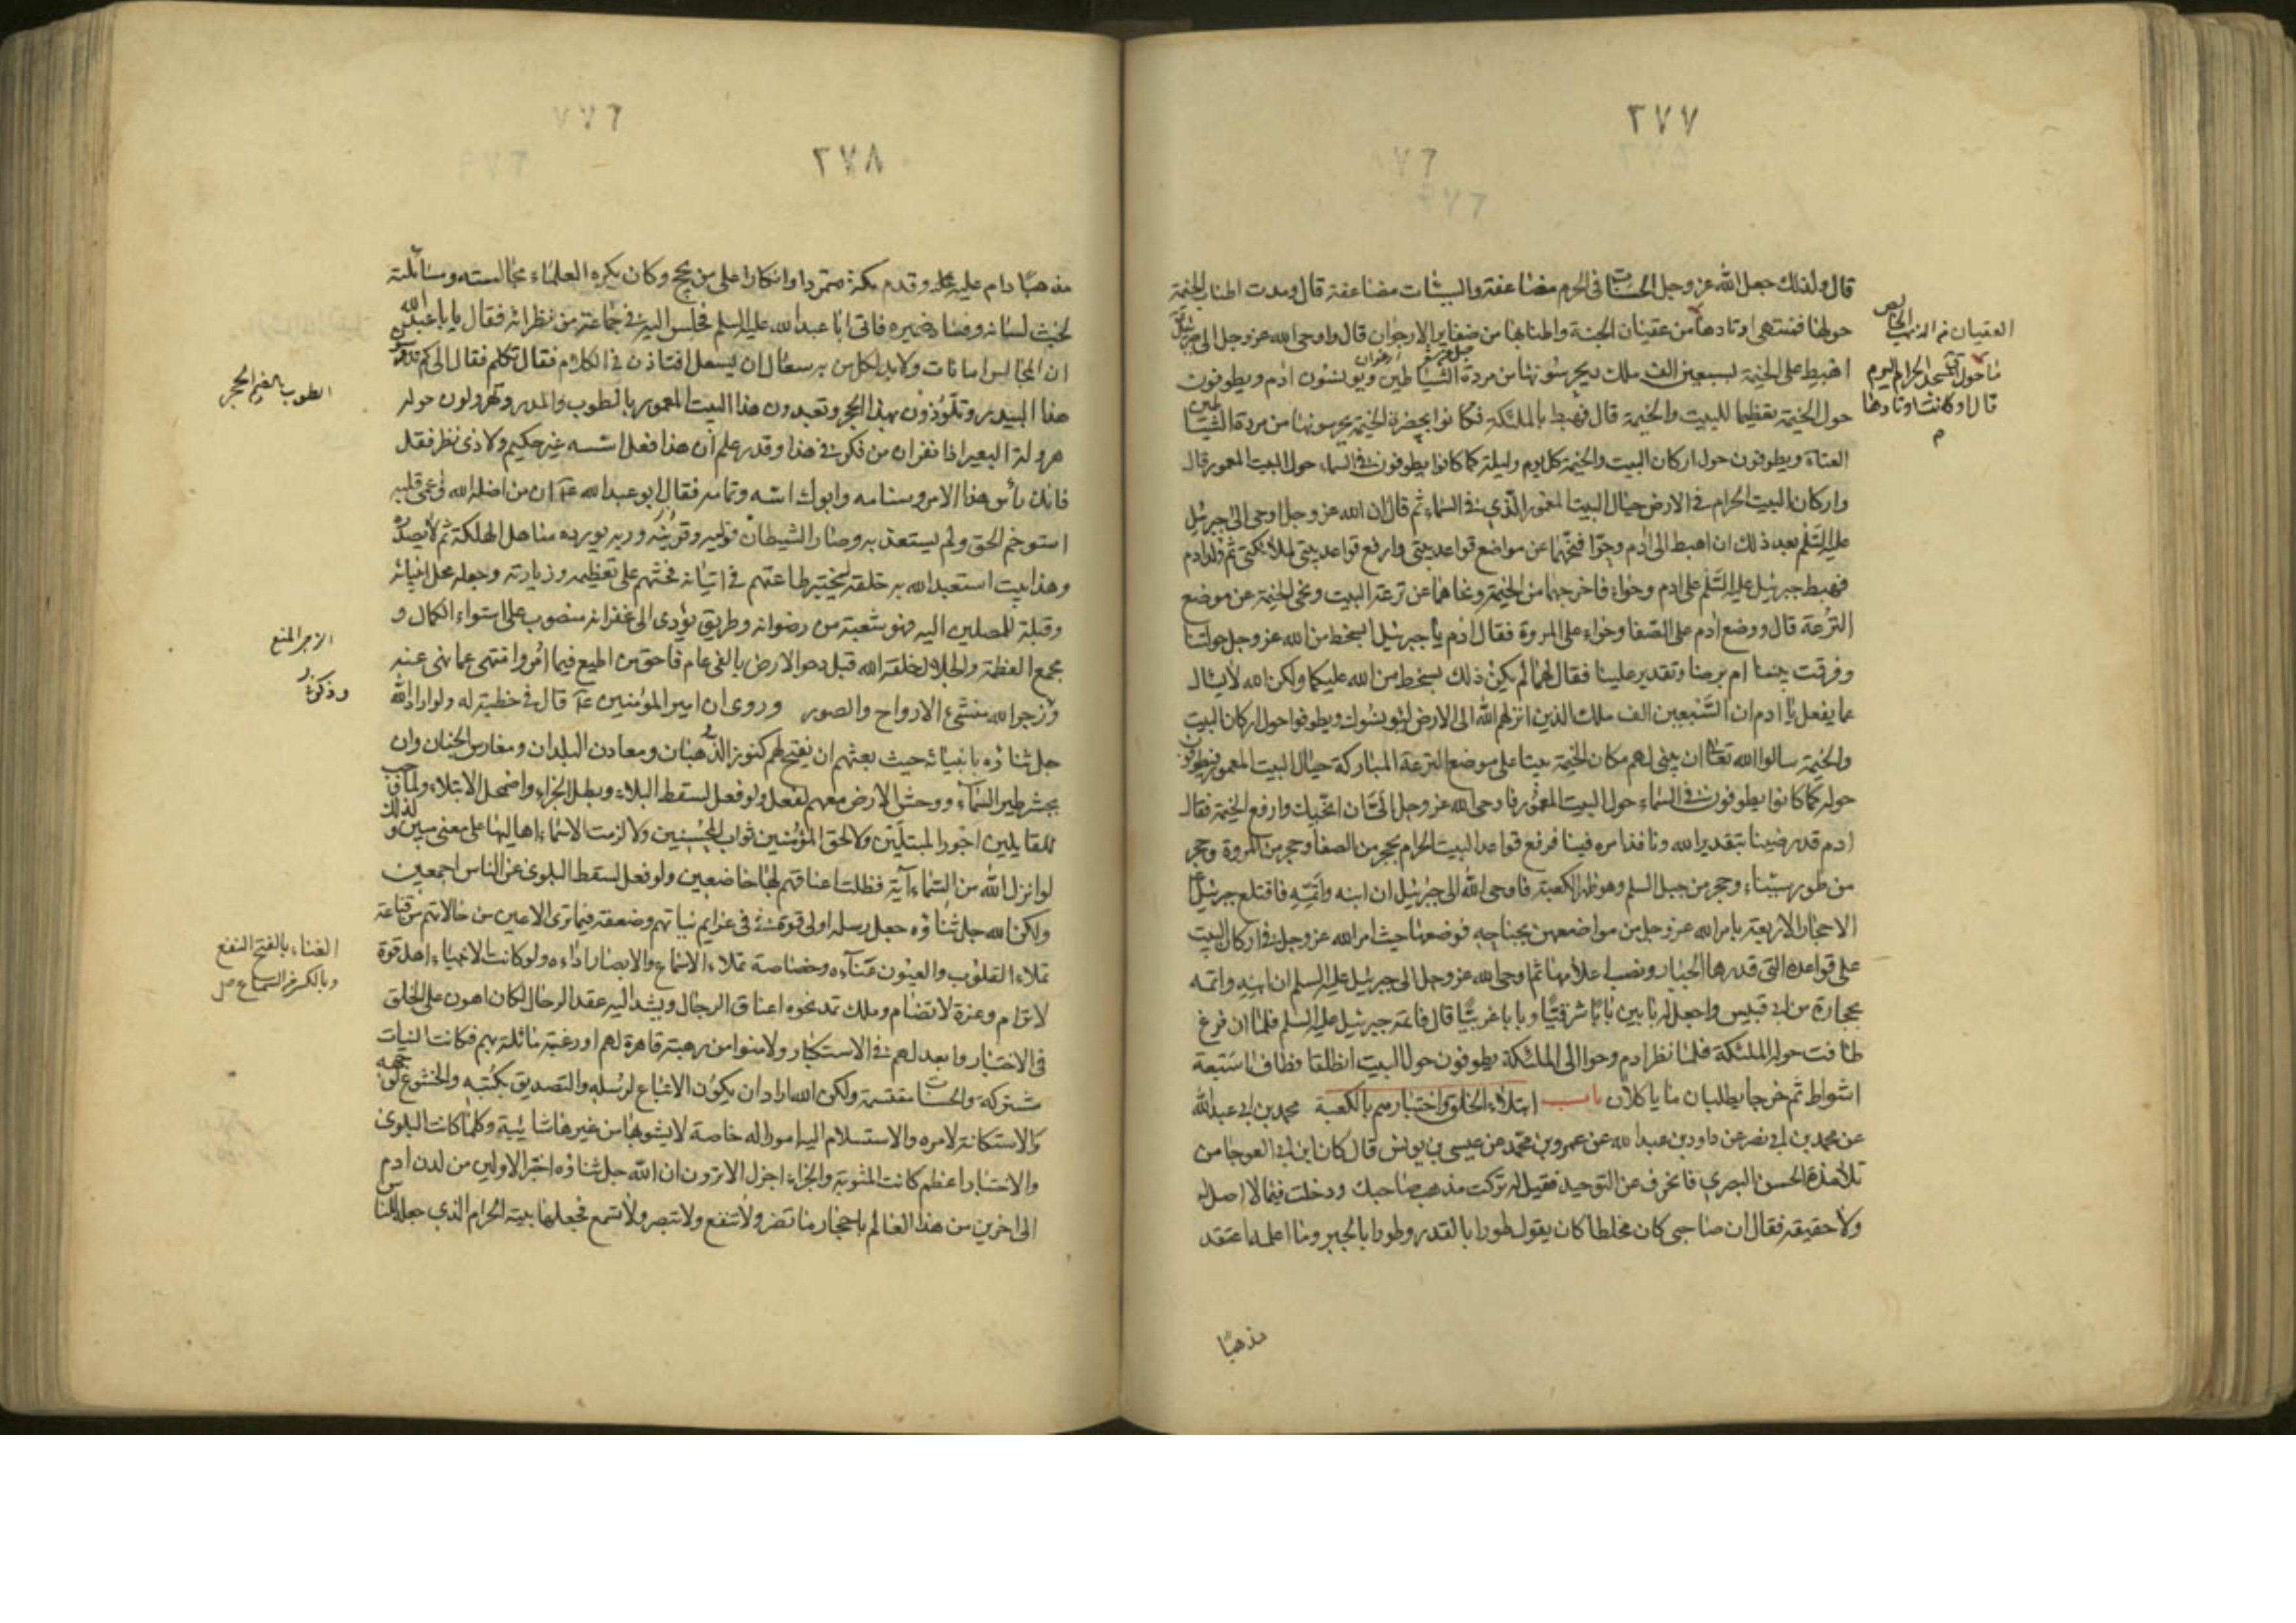 ٢٧٧
قال ولذلك جعل الله عز وجل الحسنات فى الحرم مضاعفة والسيئات مضاعفة قال ومدت اطناب الخيمة
حولها فمنتهى اوتادها من عقيان الجنة واطنابها من ضفاير الارجوان قال واوحى الله عز وجل الى جبرئيل
اهبط على الخيمة بسبعين الف ملك يحرسونها من مردة الشياطين ويونسون ادم ويطوفون
حول الخيمة تعظيما للبيت والخيمة قال فهبط بالملئكة فكانوا بحضرة الخيمة يحرسونها من مردة الشياطين
العتاة ويطوفون حول اركان البيت والخيمة كل يوم وليلة كما كانوا يطوفون فى السماء حول البيت المعمور قال
واركان البيت الحرام فى الارض حيال البيت المعمور الذي فى السماء ثم قال ان الله عز وجل اوحى الى جبرئيل
عليه السلم بعد ذلك ان اهبط الى ادم وحوا فنحهما عن مواضع قواعد بيتى وارفع قواعد بيتى لملائكتى ثم ولد ادم
فهبط جبرئيل عليه السلم على ادم وحواء فاخرجهما من الخيمة ونحاهما عن ترعة البيت ونحى الخيمة عن موضع
الترعة قال ووضع ادم على الصفا وحواء على المروة فقال ادم يا جبرئيل ابسخط من الله عز وجل حولتنا
وفرقت بيننا ام برضا وتقدير علينا فقال لهما لم يكن ذلك بسخط من الله عليكما ولكن الله لا يسال
عما يفعل يا ادم ان السبعين الف ملك الذين انزلهم الله الى الارض ليونسوك ويطوفوا حول اركان البيت
والخيمة سالوا الله تعالى ان يبنى لهم مكان الخيمة بيتا على موضع الترعة المباركة حيال البيت المعمور فيطوفون
حوله كما كانوا يطوفون فى السماء حول البيت المعمور فاوحى الله عز وجل الى ان انحيك وارفع الخيمة فقال
ادم قد رضينا بتقدير الله ونافذ امره فينا فرفع قواعد البيت الحرام بحجر من الصفا وحجر من المروة وحجر
من طور سيناء وحجر من جبل السلم وهو ظهر الكعبة فاوحى الله الى جبرئيل ان ابنه واتمه فاقتلع جبرئيل
الاحجار الاربعة بامر الله عز وجل من مواضعهن بجناحه فوضعها حيث امر الله عز وجل فى اركان البيت
على قواعده التى قدرها الجبار ونصب اعلامها ثم اوحى الله عز وجل الى جبرئيل عليه السلم ان ابنه واتمه
بحجارة من ابى قبيس واجعل له بابين بابا شرقيا وبابا غربيا قال فاتمه جبرئيل عليه السلم فلما ان فرغ
طافت حوله الملئكة فلما نظر ادم وحوا الى الملئكة يطوفون حول البيت انطلقا فطافا سبعة
اشواط ثم خرجا يطلبان ما ياكلان باب ابتلاء الخلق واختبارهم بالكعبة محمد بن ابى عبد الله
عن محمد بن ابى نصر عن داود بن عبد الله عن عمرو بن محمد عن عيسى بن يونس قال كان ابن ابى العوجا من
تلامذة الحسن البصري فانحرف عن التوحيد فقيل له تركت مذهب صاحبك ودخلت فيما لا اصل له
ولا حقيقة فقال ان صاحبى كان مخلطا كان يقول طورا بالقدر وطورا بالجبر وما اعلمه اعتقد
مذهبًا
العقيان من الذهب الخالص
ما حول المسجد الحرام اليوم
قال وكانت اوتادها
٢٧٨
مذهبًا دام عليه قال وقدم مكة متمردا وانكارا على من يحج وكان يكره العلماء مجالسته ومسائلته
لخبث لسانه وفساد ضميره فاتى ابا عبد الله عليه السلم فجلس اليه فى جماعة من نظرائه فقال يا با عبد الله
ان المجالس امانات ولا بد لكل من به سعال ان يسعل افتاذن فى الكلام فقال تكلم فقال الى كم تدوسون
هذا البيدر وتلوذون بهذا الحجر وتعبدون هذا البيت المعمور بالطوب والمدر وتهرولون حوله
هرولة البعير اذا نفر ان من فكر فى هذا وقدر علم ان هذا فعل اسسه غير حكيم ولا ذى نظر فقل
فانك رأس هذا الامر وسنامه وابوك اسه وتمامه فقال ابو عبد الله ان من اضله الله واعمى قلبه
استوخم الحق ولم يستعذبه وصار الشيطان وليه وقرينه وربه يورده مناهل الهلكة ثم لا يصدره
وهذا بيت استعبد الله به خلقه ليختبر طاعتهم فى اتيانه فحثهم على تعظيمه وزيارته وجعله محل انبيائه
وقبلة للمصلين اليه فهو شعبة من رضوانه وطريق يؤدى الى غفرانه منصوب على استواء الكمال و
مجمع العظمة والجلال خلقه الله قبل دحو الارض بالفى عام فاحق من اطيع فيما امر وانتهى عما نهى عنه
وزجر الله منشئ الارواح والصور وروى ان امير المؤمنين قال فى خطبة له ولو اراد الله
جل ثناؤه بانبيائه حيث بعثهم ان يفتح لهم كنوز الذهبان ومعادن البلدان ومغارس الجنان وان
يحشر طير السماء ووحش الارض معهم لفعل ولو فعل لسقط البلاء وبطل الجزاء واضمحل الابتلاء ولما وجب
للقايلين اجور المبتلين ولا لحق المؤمنين ثواب المحسنين ولا لزمت الاسماء اهاليها على معنى مبين ولذلك
لو انزل الله من السماء آية فظلت اعناقهم لها خاضعين ولو فعل لسقط البلوى عن الناس اجمعين
ولكن الله جل ثناؤه جعل رسله اولى قوة فى عزايم نياتهم وضعفة فيما ترى الاعين من حالاتهم من قناعة
تملاء القلوب والعيون غناءه وخصاصة تملاء الاسماع والابصار اداءه ولو كانت الانبياء اهل قوة
لا ترام وعزة لا تضام وملك تمد نحوه اعناق الرجال ويشد اليه عقد الرحال لكان اهون على الخلق
فى الاختبار وابعد لهم فى الاستكبار ولامنوا من رهبة قاهرة لهم او رغبة مائلة بهم فكانت النيات
مشتركة والحسنات مقتسمة ولكن الله اراد ان يكون الاتباع لرسله والتصديق بكتبه والخشوع لوجهه
والاستكانة لامره والاستسلام اليه امورا له خاصة لا يشوبها من غيرها شائبة وكلما كانت البلوى
والاختبار اعظم كانت المثوبة والجزاء اجزل الا ترون ان الله جل ثناؤه اختبر الاولين من لدن ادم
الى اخرين من هذا العالم باحجار ما تضر ولا تنفع ولا تبصر ولا تسمع فجعلها بيته الحرام الذي جعله للناس
الطوب بالضم الحجر
الزجر المنع
الغناء بالفتح النفع
وبالكسر السماع